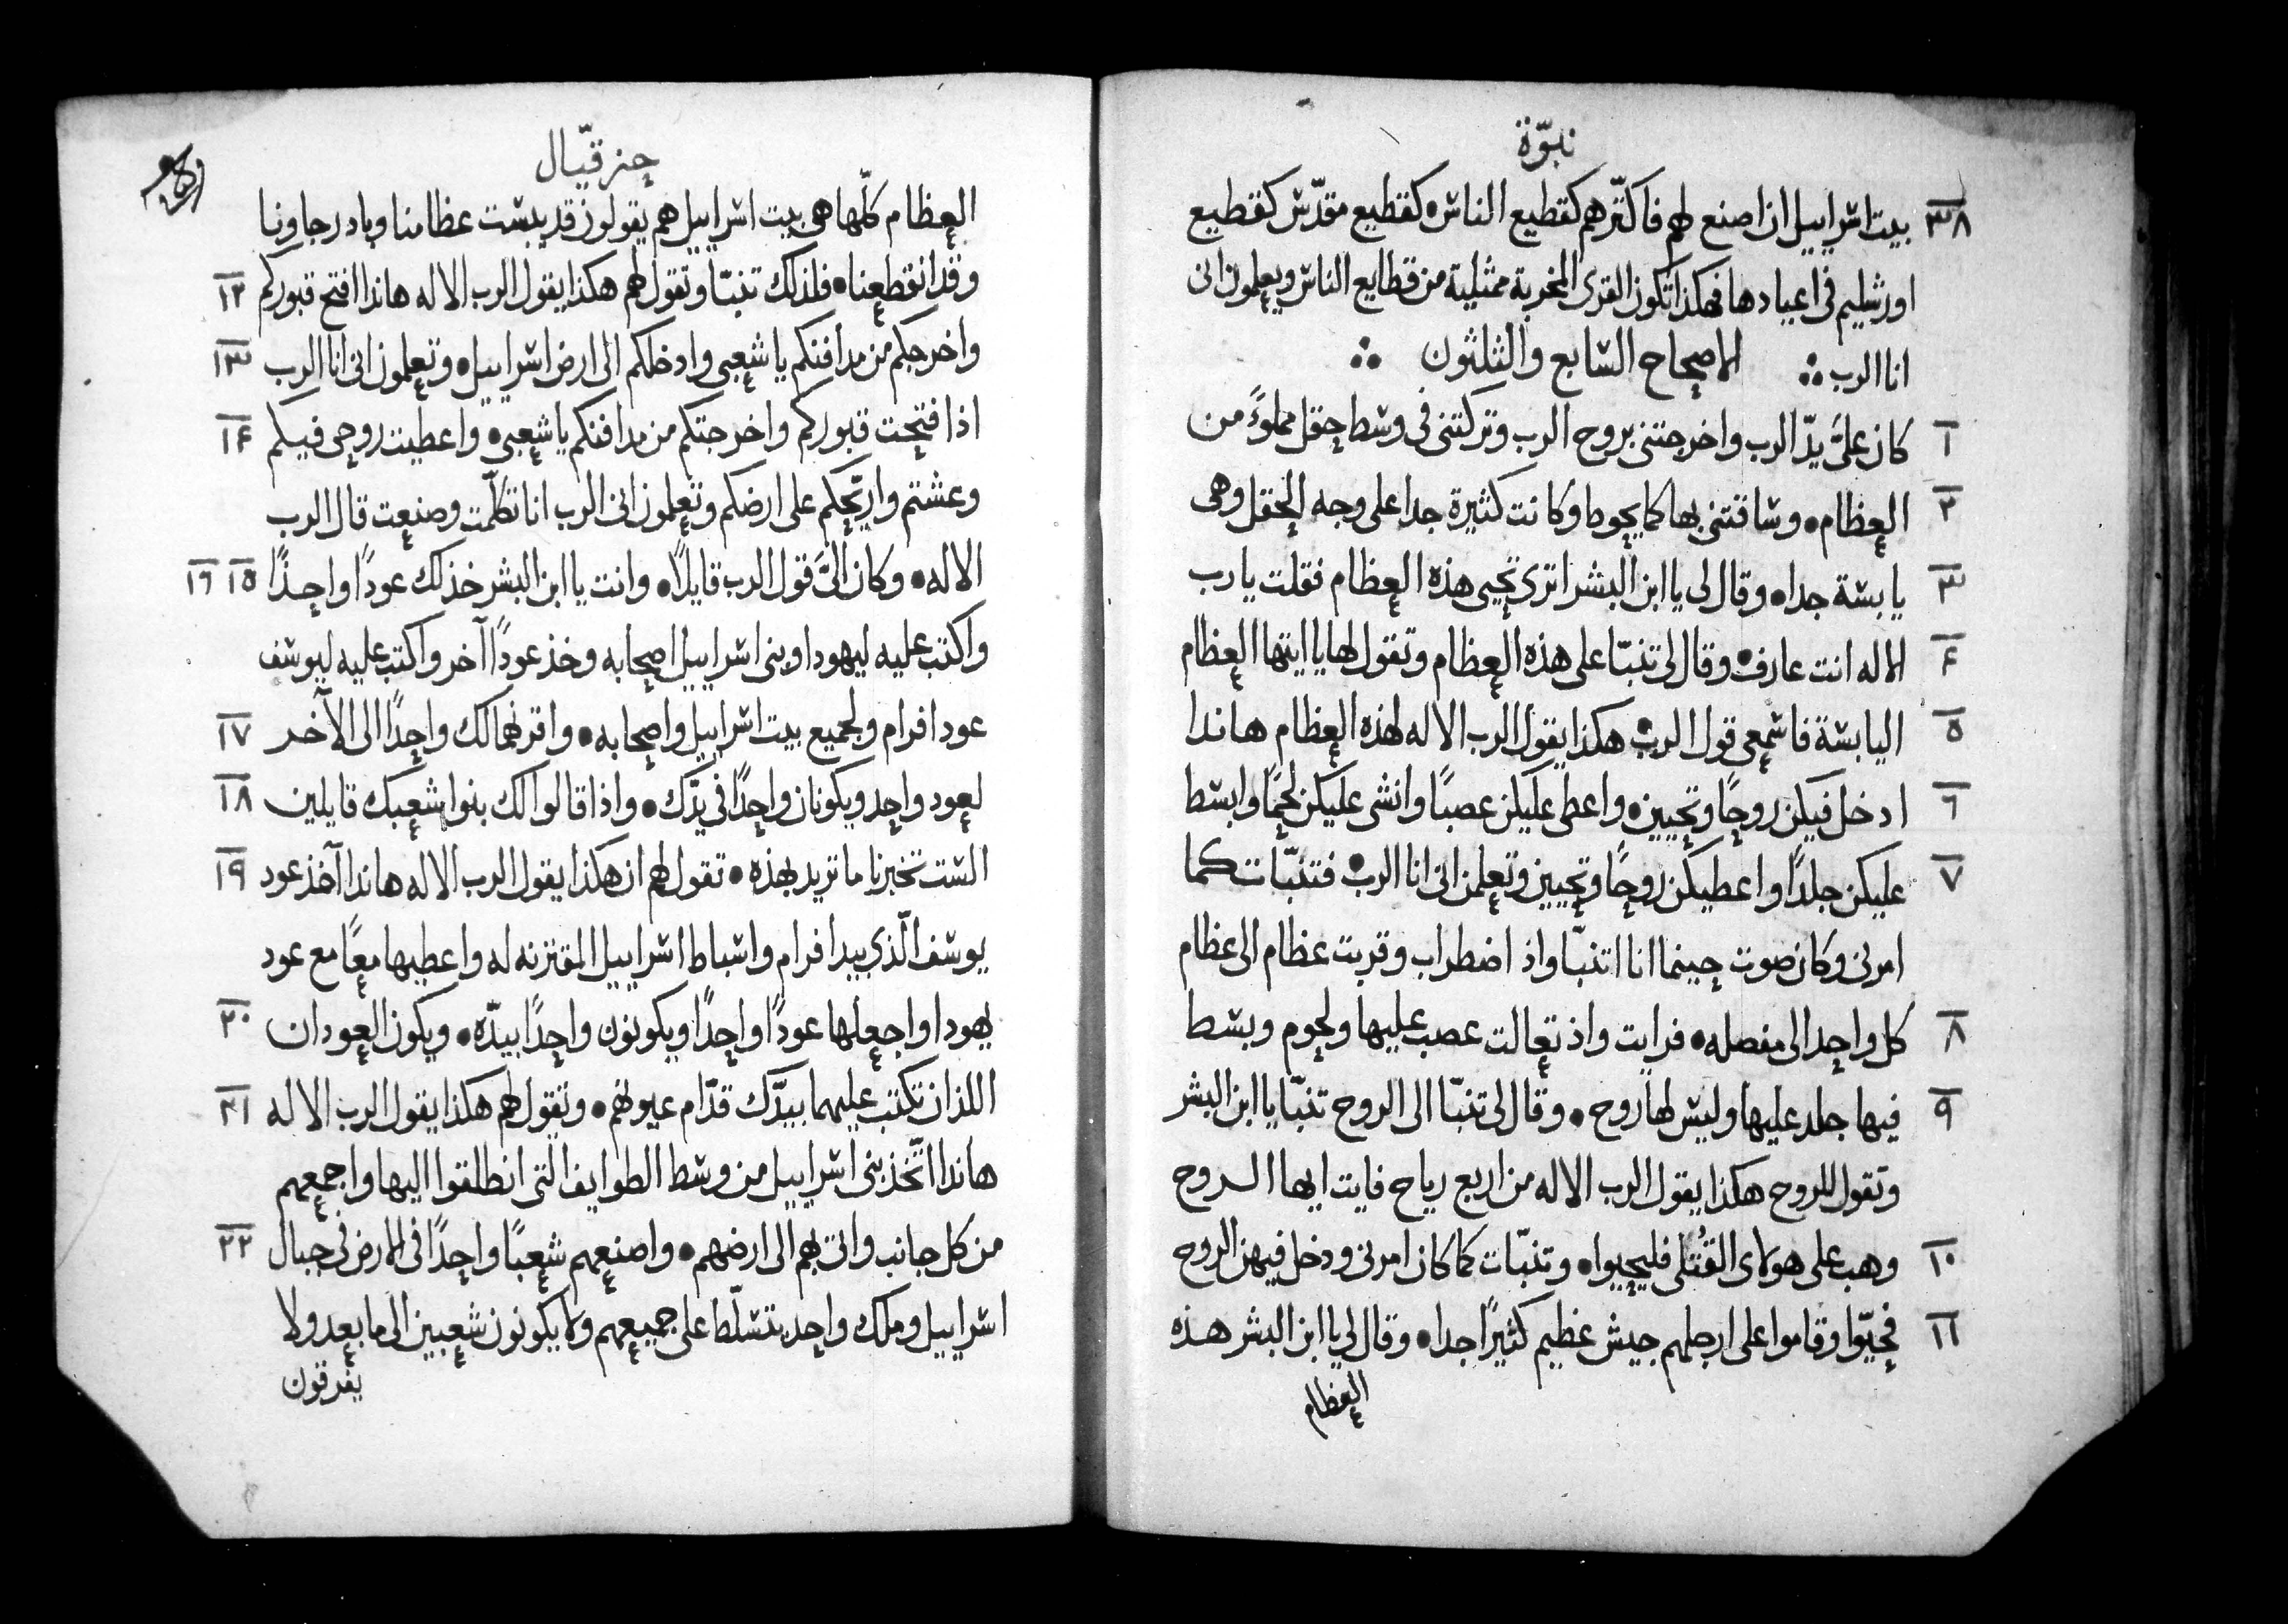 نبوّة
٣٨ بيت اسراييل ان اصنع لهم فاكثّرهم كقطيع الناس • كقطيع مقدّس كقطيع
اورشليم في اعيادها فهكذا تكون القرى المخربة ممثلية من قطايع الناس ويعلمون انى
انا الرب ∴ الاصحاح السابع والثلثون ∴
١ كان علىَّ يدّ الرب واخرجتنى بروح الرب وتركتنى فى وسط حقل مملوءً من
٢ العظام • وساقتنى بها كما يحوط وكانت كثيرة جدا على وجه الحقل وهى
٣ يابسة جدا • وقال لى يا ابن البشر اترى تحيى هذه العظام فقلت يا رب
٤ الاله انت عارف • وقال لى تنبّا على هذه العظام وتقول لها يا ايتها العظام
٥ اليابسة فاسمعى قول الرب • هكذا يقول الرب الاله لهذه العظام هاندا
٦ ادخل فيكن روحًا وتحيين • واعطى عليكن عصبًا وانشى عليكن لحمًا وابسط
٧ عليكن جلدًا واعطيكن روحًا وتحيين وتعلمن انى انا الرب • فتنبّات كما
امرنى وكان صوت حينما انا اتنبّا واذ اضطراب وقربت عظام الى عظام
٨ كل واحد الى مفصله • فرايت واذ تعالت عصب عليها ولحوم وبسط
٩ فيها جلد عليها وليس لها روح • وقال لى تنبّا الى الروح تنبّا يا ابن البشر
وتقول للروح هكذا يقول الرب الاله من اربع رياح فايت ايها الروح
١٠ وهب على هولاى القُتلى فليحيوا • وتنبّات كما كان امرنى ودخل فيهن الروح
١١ فحيّوا وقاموا على ارجلهم جيش عظيم كثيرًا جدا • وقال لى يا ابن البشر هذه
العظام
حزقيّال
العظام كلّها هى بيت اسراييل هم يقولون قد يبست عظامنا وباد رجاونا
وقد انقطعنا • فلذلك تنبّا وتقول لهم هكذا يقول الرب الاله هاندا افتح قبوركم ١٢
واخرجكم من مدافنكم يا شعبى وادخلكم الى ارض اسراييل • وتعلمون انى انا الرب ١٣
اذا فتحت قبوركم واخرجتكم من مدافنكم يا شعبى • واعطيت روحى فيكم ١٤
وعشتم واريّحكم على ارضكم وتعلمون انى الرب انا تكلّمت وصنعت قال الرب
الاله • وكان الىَّ قول الرب قايلًا • وانت يا ابن البشر خذ لك عودًا واحدًا ١٥ ١٦
واكتب عليه ليهودا وبنى اسراييل اصحابه وخذ عودًا آخر واكتب عليه ليوسف
عود افرام ولجميع بيت اسراييل واصحابه • واقرنهما لك واحدًا الى الآخر ١٧
لعود واحد ويكونان واحدًا فى يدّك • واذا قالوا لك بنوا شعبك قايلين ١٨
الست تخبرنا ما تريد بهذه • تقول لهم ان هكذا يقول الرب الاله هاندا آخذ عود ١٩
يوسف الّذى بيد افرام واسباط اسراييل المقترنه له واعطيها معًا مع عود
يهودا واجعلها عودًا واحدًا ويكونون واحدًا بيدّه • ويكون العودان ٢٠
اللذان تكتب عليهما بيدّك قدّام عيونهم • وتقول لهم هكذا يقول الرب الاله ٢١
هاندا اتّخذ بنى اسراييل من وسط الطوايف التى انطلقوا اليها واجمعهم
من كل جانب واتى بهم الى ارضهم • واصنعهم شعبًا واحدًا فى الارض فى جبال ٢٢
اسراييل وملك واحد يتسلّط على جميعهم ولا يكونون شعبين الى ما بعد ولا
يفرقون